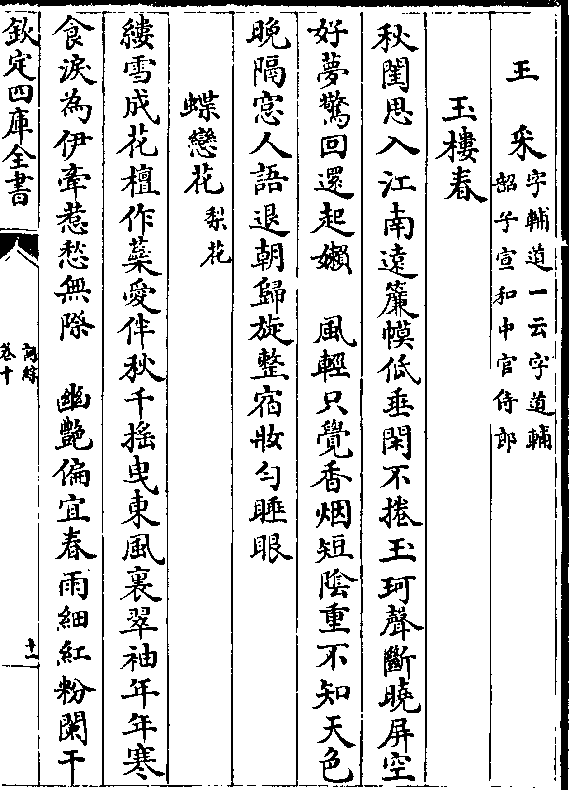 王 采 字輔道一云字道輔
韶子宣和中官侍郎
玉樓春
秋閨思入江南遠簾幙低垂閑不捲玉珂聲斷曉屏空
好夢驚回還起嬾 風輕只覺香烟短陰重不知天色
晚隔窓人語退朝歸旋整宿妝勻睡眼
蝶戀花 梨花
縷雪成花檀作蘂愛伴秋千搖曳東風裏翠袖年年寒
食淚為伊牽惹愁無際 幽艷偏宜春雨細紅粉闌干
欽定四庫全書
詞綜
卷十
十一